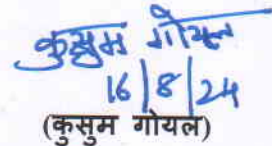 कुसुम गोयल
16/8/24
(कुसुम गोयल)